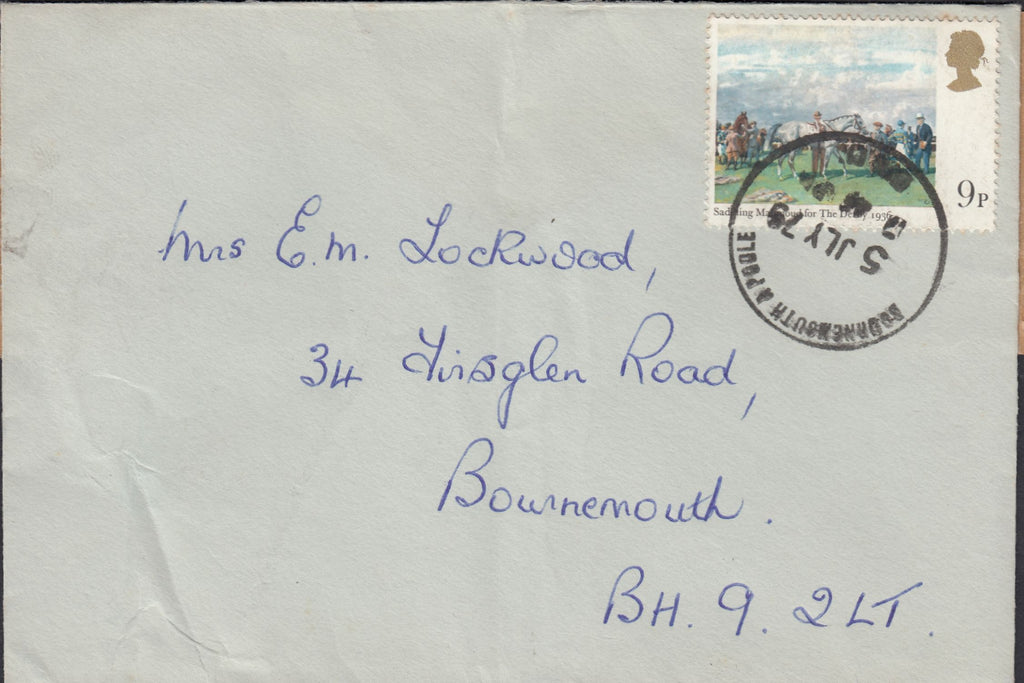 9P
Saddling Mahmoud for The Derby 1936
BOURNEMOUTH & POOLE
5 JLY 79
Mrs E.M. Lockwood,
34 Firsglen Road,
Bournemouth.
BH. 9. 2LT.